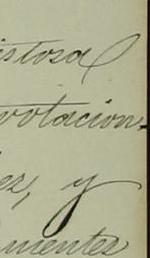 istosa
votacion.
es, y
mentes